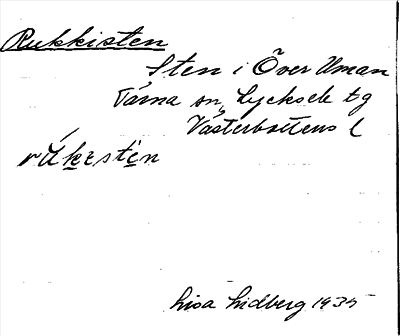 Rukkisten
Sten i Över Uman
Tärna sn, Lycksele tg
Västerbottens l
rúkₑstìn
Lisa Lidberg 1935